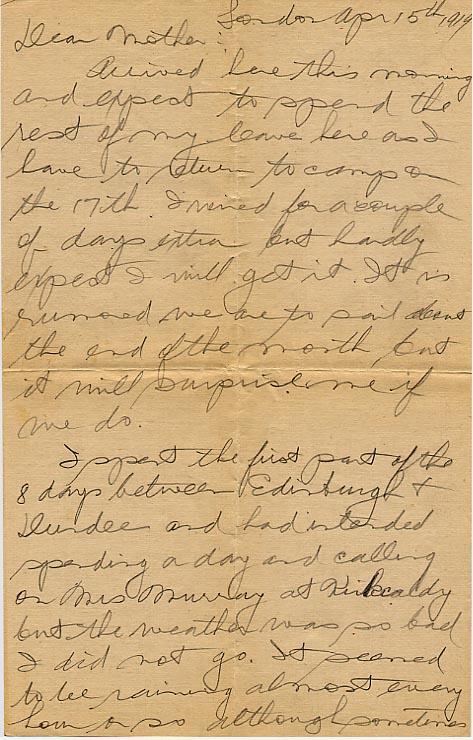 London Apr 15th, 1919
Dear Mother:
Arrived here this morning
and expect to spend the
rest of my leave here as I
have to return to camp on
the 17th. I wired for a couple
of days extra but hardly
expect I will get it. It is
rumored we are to sail about
the end of the month, but
it will surprise me if
we do.
I spent the first part of the
8 days between Edinburgh &
Dundee and had intended
spending a day and calling
on Mrs Murray at Kirkcaldy
but the weather was so bad
I did not go. It seemed
to be raining almost every
hour or so although sometimes